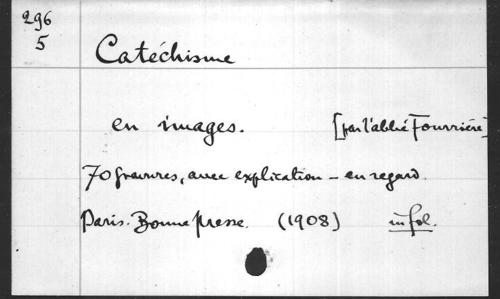 296
5
Catéchisme
en images. [par l'abbé Fourrière]
70 gravures, avec explication - en regard.
Paris. Bonne presse. (1908) in fol.